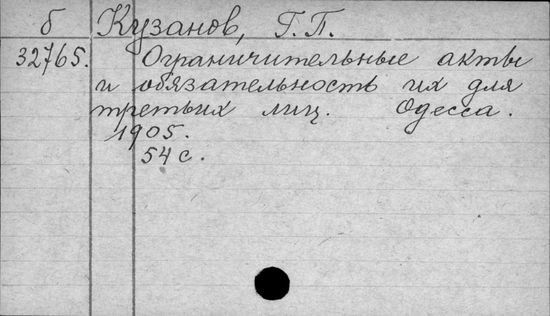 б Кузанов, Г.П.
32765. Ограничительные акты
и обязательность их для
третьих лиц. Одесса.
1905.
54 с.